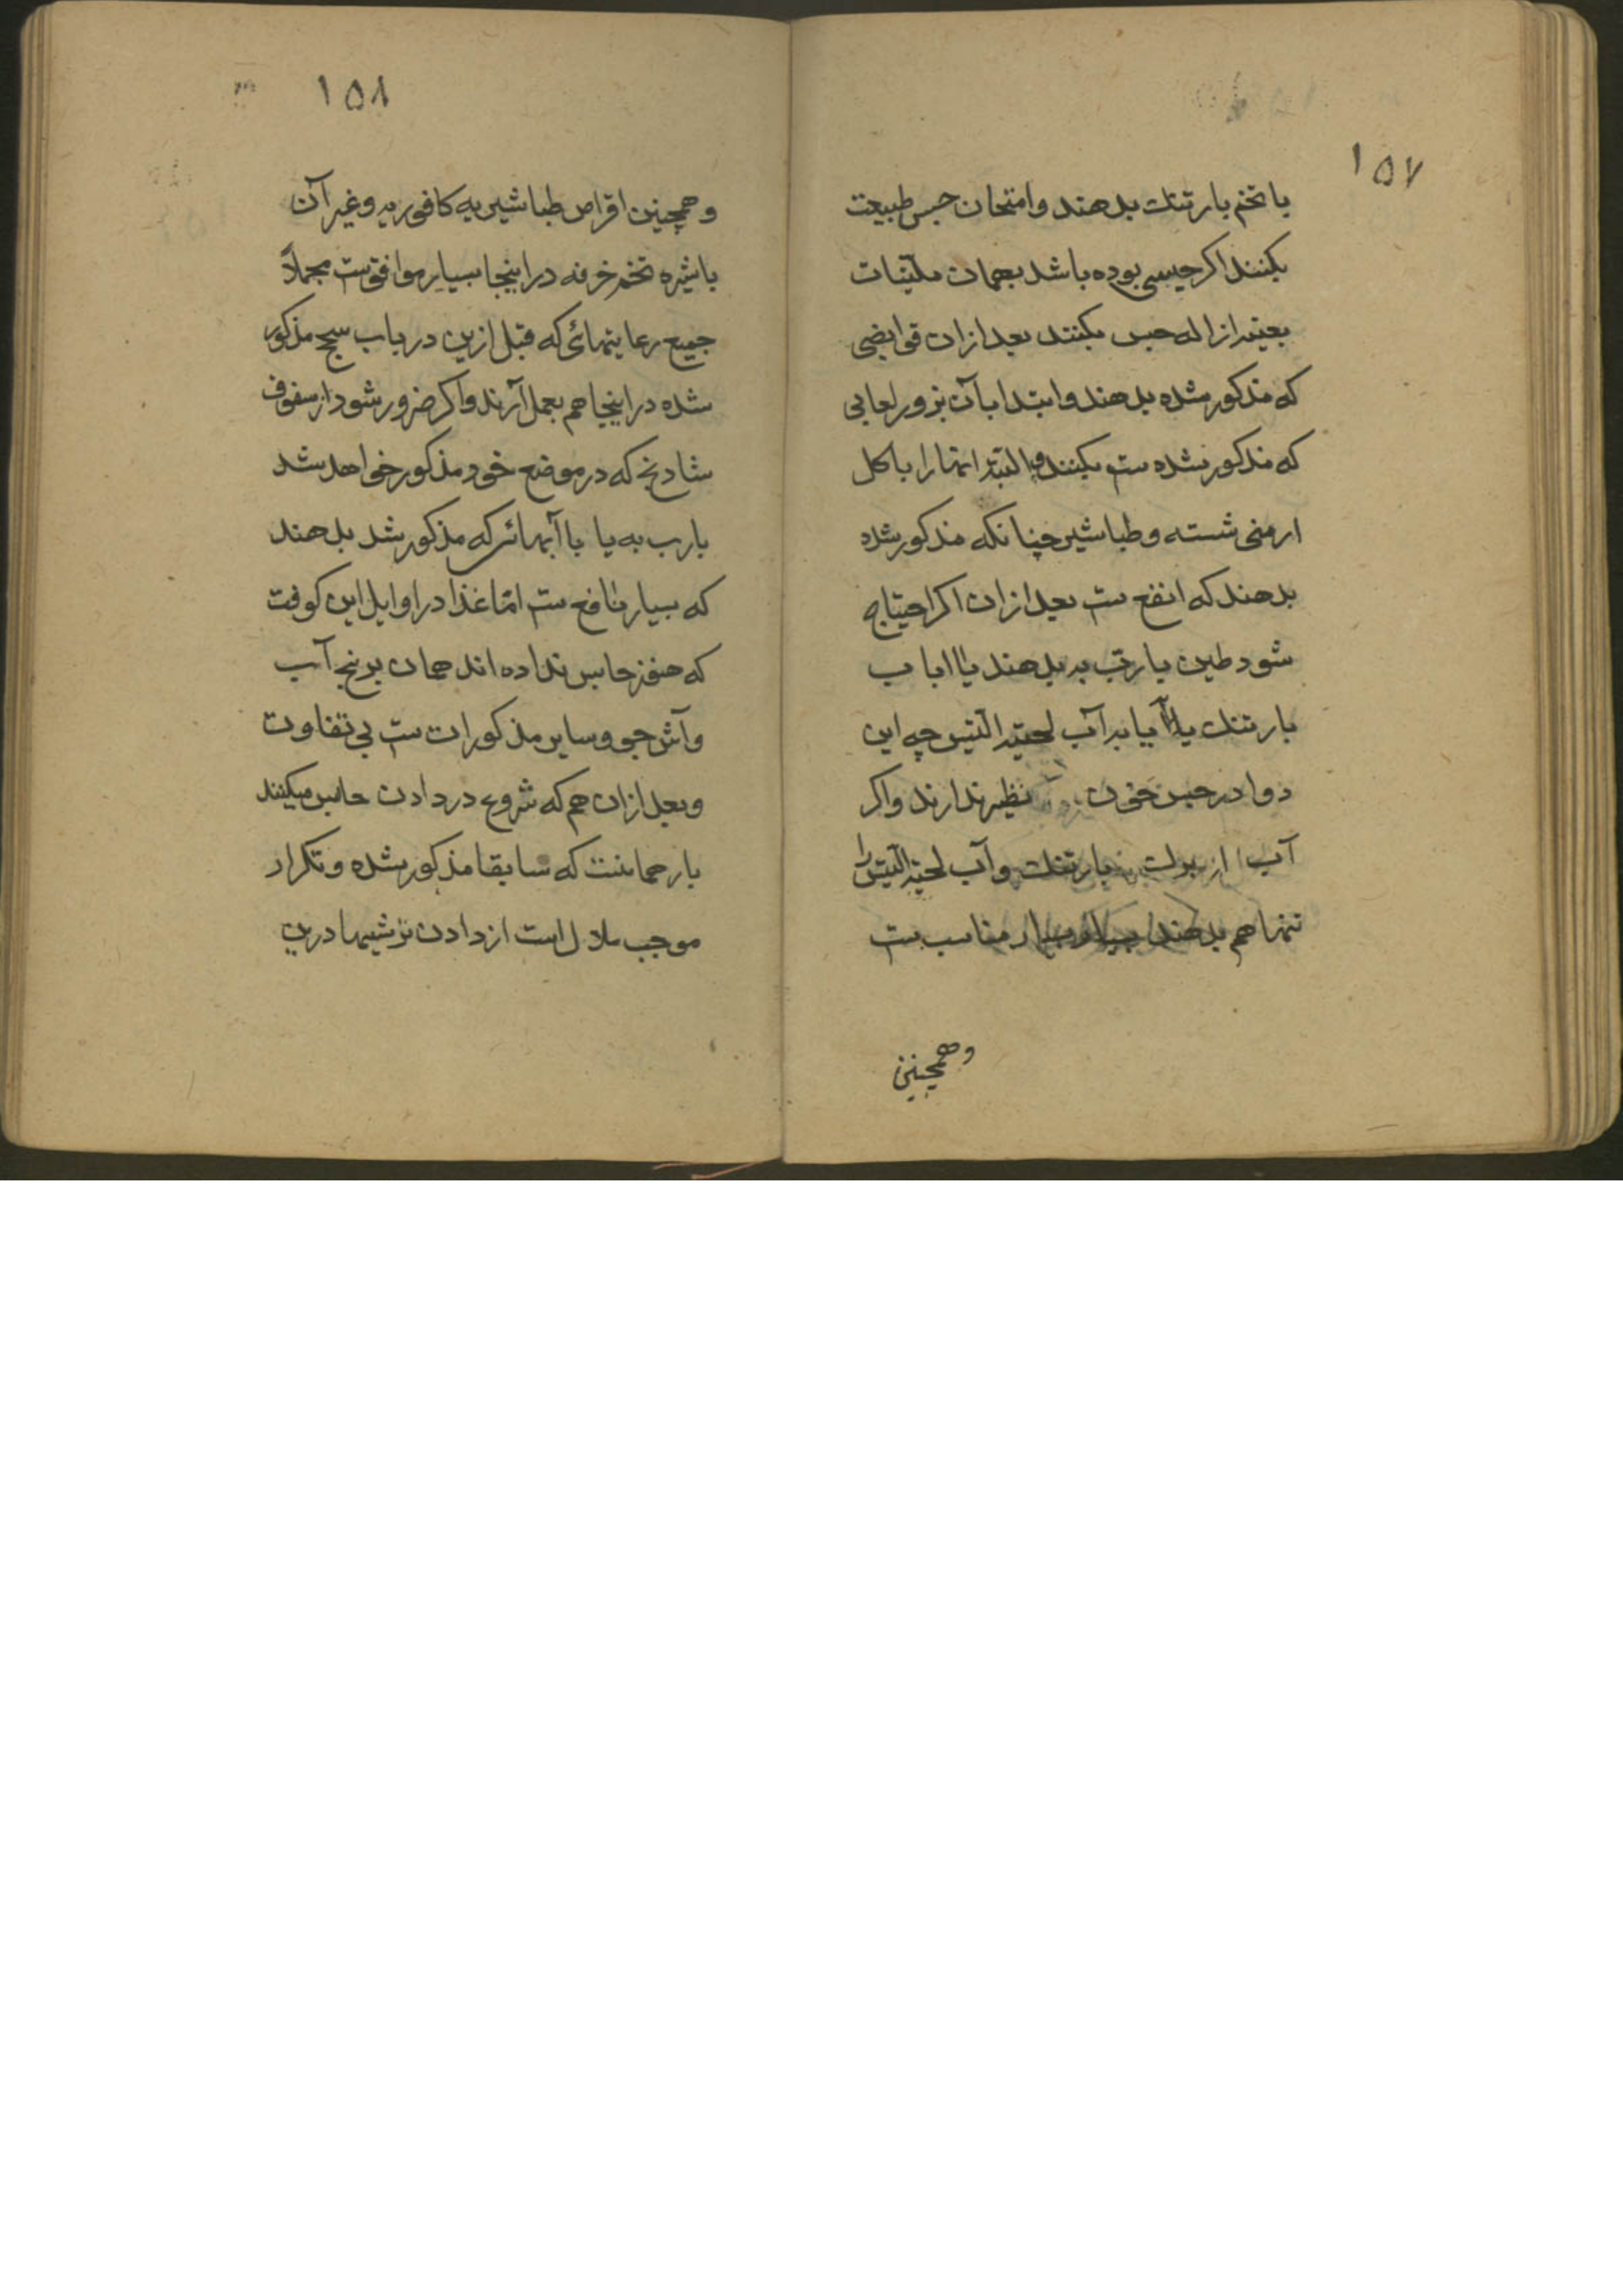 ۱۵۷
با تخم بارتنک بدهند و امتحان حبس طبیعت
بکنند اکر حبسی بوده باشد بهمان ملینات
بعینه ازاله حبس بکنند بعد ازان قوابضی
که مذکور شده بدهند و ابتدا بآن بزور لعابی
که مذکور شده ست بکنند و البته انها را با کل
ارمنی شسته و طباشیر چنانکه مذکور شده
بدهند که انفع ست بعد ازان اکر احتیاج
شود طین با رب به بدهند یا با آب
بارتنک یا با آب لحیة التیس چه این
دوا در حبس خون نظیر ندارند و اکر
آب بارتنک و آب لحیة التیس را
تنها هم بدهند بسیار مناسب ست
وهمچنین
۱۵۸
وهمچنین اقراص طباشیریه کافوریه و غیر آن
با شیره تخم خرفه دراینجا بسیار موافق ست مجملاً
جمیع رعایتهائی که قبل ازین در باب سحج مذکور
شده دراینجا هم بعمل آرند و اکر ضرور شود از سفوف
شادنج که در موضع خود مذکور خواهد شد
با رب به یا با آبهائی که مذکور شد بدهند
که بسیار نافع ست امّا غذا در اوایل این کوفت
که هنوز حابس نداده اند همان برنج آب
وآش جو و سایر مذکورات ست بی تفاوت
و بعد ازان هم که شروع در دادن حابس میکنند
بار همانست که سابقا مذکور شده و تکرار
موجب ملال است از دادن ترشیها درین